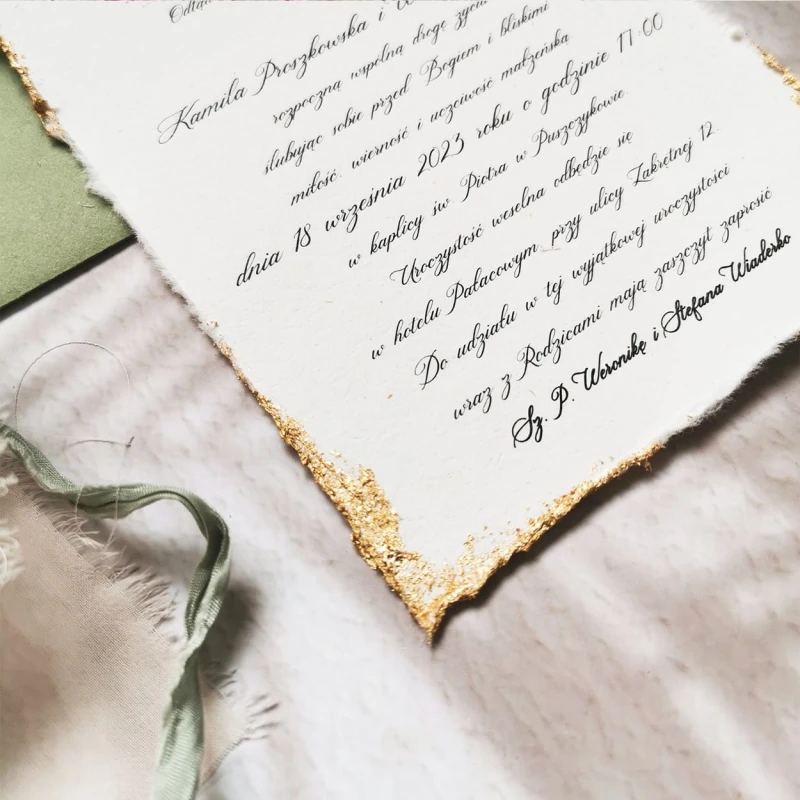 Kamila Proszkowska i
rozpoczną wspólną drogę życia
ślubując sobie przed Bogiem i bliskimi
miłość, wierność i uczciwość małżeńską
dnia 18 września 2023 roku o godzinie 17:00
w kaplicy św Piotra w Puszczykowie
Uroczystość weselna odbędzie się
w hotelu Pałacowym przy ulicy Zakrętnej 12.
Do udziału w tej wyjątkowej uroczystości
wraz z Rodzicami mają zaszczyt zaprosić
Sz. P. Weronikę i Stefana Wiaderko